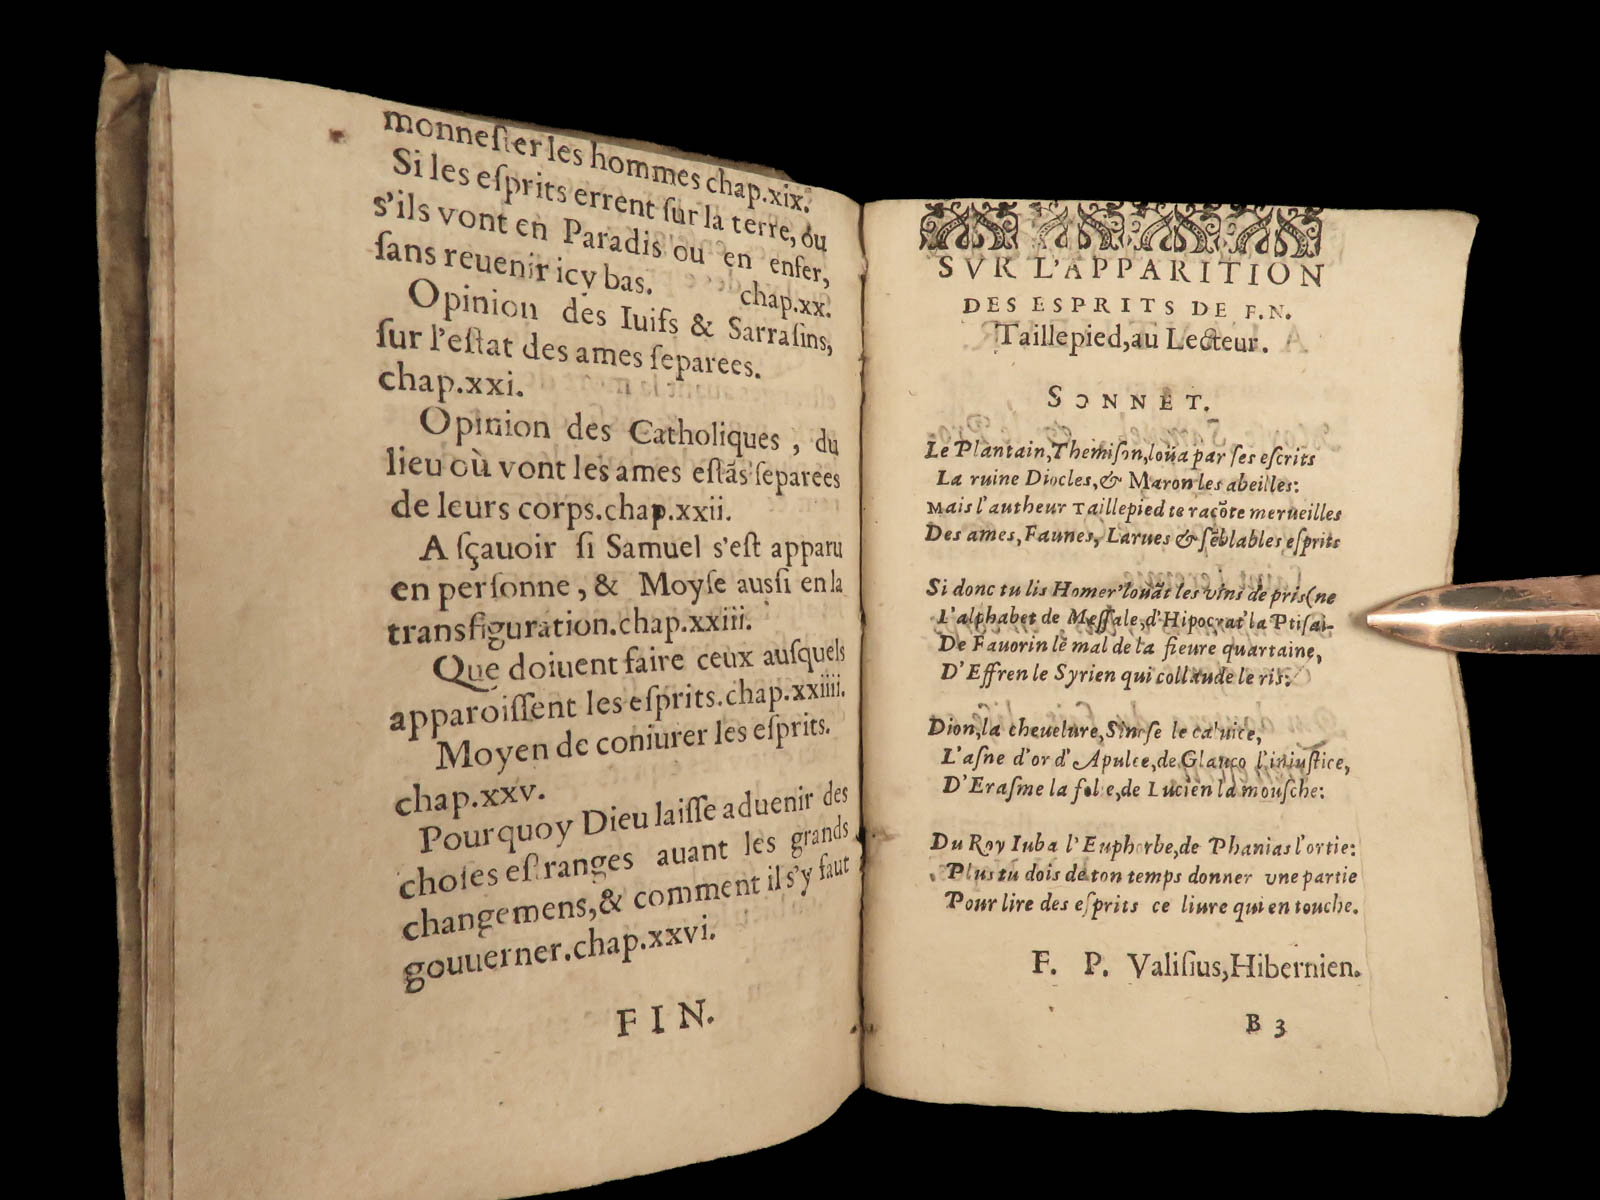 monneſter les hommes chap.xix.
Si les eſprits errent ſur la terre, ou
s'ils vont en Paradis ou en enfer,
ſans reuenir icy bas. chap.xx.
Opinion des Iuifs & Sarraſins,
ſur l'eſtat des ames ſeparees.
chap.xxi.
Opinion des Catholiques, du
lieu où vont les ames eſtãs ſeparees
de leurs corps.chap.xxii.
A ſçauoir ſi Samuel s'eſt apparu
en perſonne, & Moyſe auſſi en la
transfiguration.chap.xxiii.
Que doiuent faire ceux auſquels
apparoiſſent les eſprits.chap.xxiiii.
Moyen de coniurer les eſprits.
chap.xxv.
Pourquoy Dieu laiſſe aduenir des
choſes eſtranges auant les grands
changemens,& comment il s'y faut
gouuerner.chap.xxvi.
FIN.
SVR L'APPARITION
DES ESPRITS DE F.N.
Taillepied,au Lecteur.
SONNET.
Le Plantain,Themiſon,loüa par ſes eſcrits
La ruine Diocles,& Maron les abeilles:
Mais l'autheur Taillepied te racõte merueilles
Des ames, Faunes, Larues & ſẽblables eſprits
Si donc tu lis Homer' loüãt les vins de pris(ne
L'alphabet de Meſſale,d'Hipocrat' la Ptiſai-
De Fauorin le mal de la fieure quartaine,
D'Effren le Syrien qui collaude le ris:
Dion,la cheuelure, Sineſe le caluice,
L'aſne d'or d'Apulee,de Glauco l'iniuſtice,
D'Eraſme la folie,de Lucien la mouſche:
Du Roy Iuba l'Euphorbe,de Phanias l'ortie:
Plus tu dois de ton temps donner vne partie
Pour lire des eſprits ce liure qui en touche.
F. P. Valiſius,Hibernien.
B 3